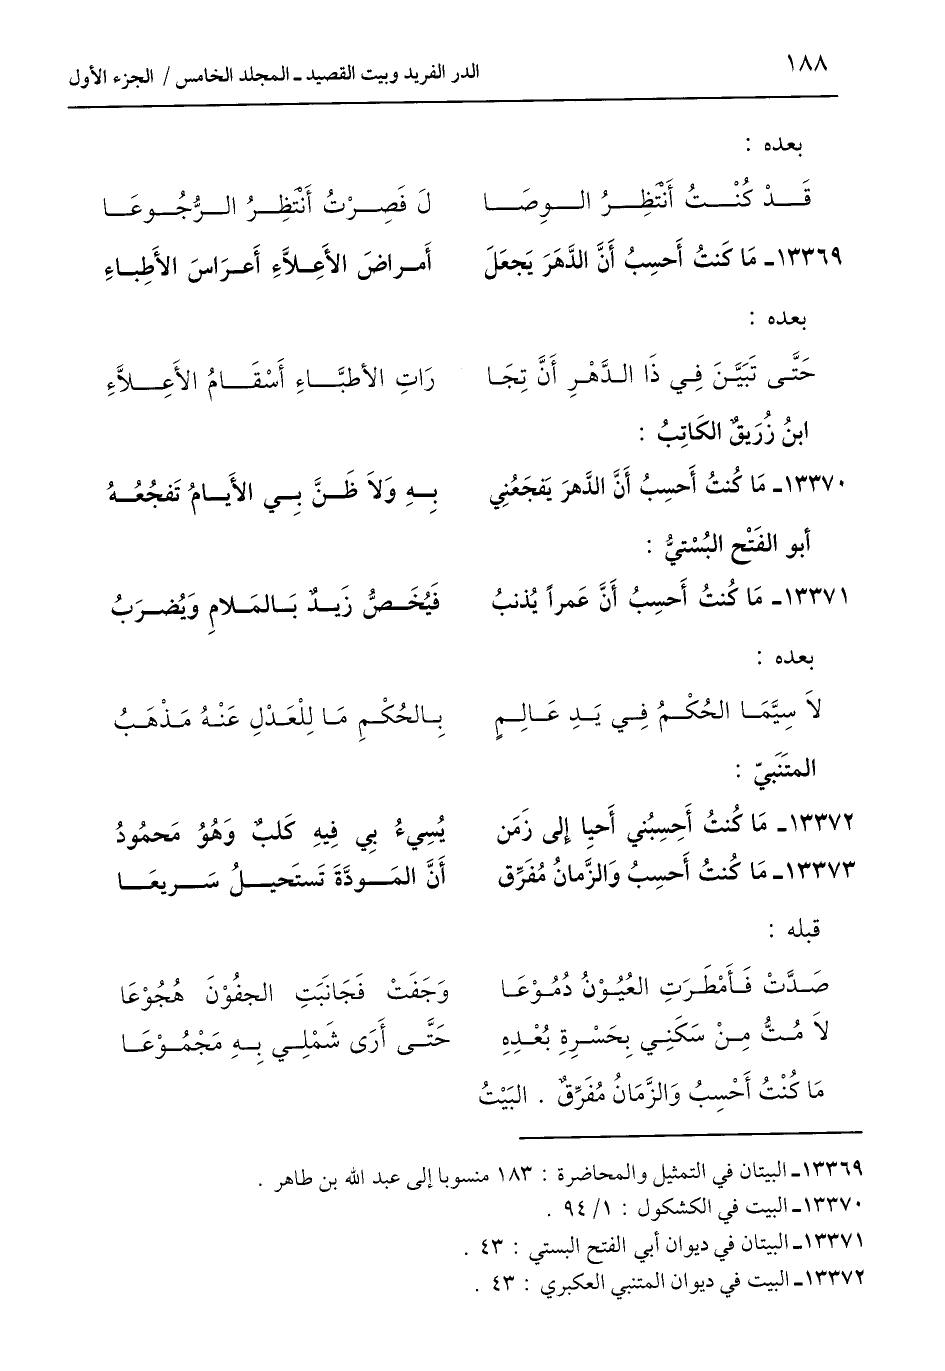 ١٨٨ الدر الفريد وبيت القصيد ـ المجلد الخامس / الجزء الأول
بعده :
قَــدْ كُنْــتُ أَنْتَظِــرُ الــوِصَــا لَ فَصِــرْتُ أَنْتَظِــرُ الــرُّجُــوعَــا
١٣٣٦٩ـ مَا كَنتُ أَحسِبُ أنَّ الدَّهرَ يَجعَلَ أمـراضَ الأعِـلاَّءِ أعـرَاسَ الأَطِبـاءِ
بعده :
حَتَّـى تَبَيَّـنَ فِـي ذَا الـدَّهْـرِ أَنَّ تِجَـا رَاتِ الأطبَّـاءِ أَسْقَـامُ الأَعِـلاَّءِ
ابنُ زُرَيقٌ الكَاتِبُ :
١٣٣٧٠ـ مَا كُنتُ أَحسِبُ أَنَّ الدَّهرَ يَفجَعُني بِـهِ وَلاَ ظَـنَّ بـي الأَيـامُ تَفجُعُـهُ
أبو الفَتْح البُسْتيُّ :
١٣٣٧١ـ مَا كُنتُ أَحسِبُ أنَّ عَمراً يُذنبُ فَيُخَـصُّ زَيـدٌ بَـالمَـلامِ وَيُضـرَبُ
بعده :
لاَ سِيَّمَـا الحُكْـمُ فِـي يَـدِ عَـالِـمٍ بِـالحُكْـمِ مَـا لِلْعَـدْلِ عَنْـهُ مَـذْهَـبُ
المتَنَبيّ :
١٣٣٧٢ـ مَا كُنتُ أحِسِبُني أحيا إلى زَمَن يُسِيءُ بِي فِيهِ كَلبٌ وَهُوُ مَحمُودُ
١٣٣٧٣ـ مَا كُنتُ أَحسِبُ وَالزَّمانُ مُفَرِّق أَنَّ المَــودَّةَ تَستَحيــلُ سَــريعَــا
قبله :
صَـدَّتْ فَـأَمْطَـرَتِ العُيُـوْنُ دُمُـوْعَـا وَجَفَتْ فَجَانَبَتِ الجفُوْنَ هُجُوْعَا
لاَ مُـتُّ مِـنْ سَكَنِـي بِحَسْرةِ بُعْـدِهِ حَتَّـى أَرَى شَمْلِـي بِـهِ مَجْمُـوْعَـا
مَا كُنْتُ أَحْسِبُ وَالزَّمَانُ مُفَرِّقٌ . البَيْتُ
١٣٣٦٩ـ البيتان في التمثيل والمحاضرة : ١٨٣ منسوبا إلى عبد الله بن طاهر .
١٣٣٧٠ـ البيت في الكشكول : ١/ ٩٤ .
١٣٣٧١ـ البيتان في ديوان أبي الفتح البستي : ٤٣ .
١٣٣٧٢ـ البيت في ديوان المتنبي العكبري : ٤٣ .